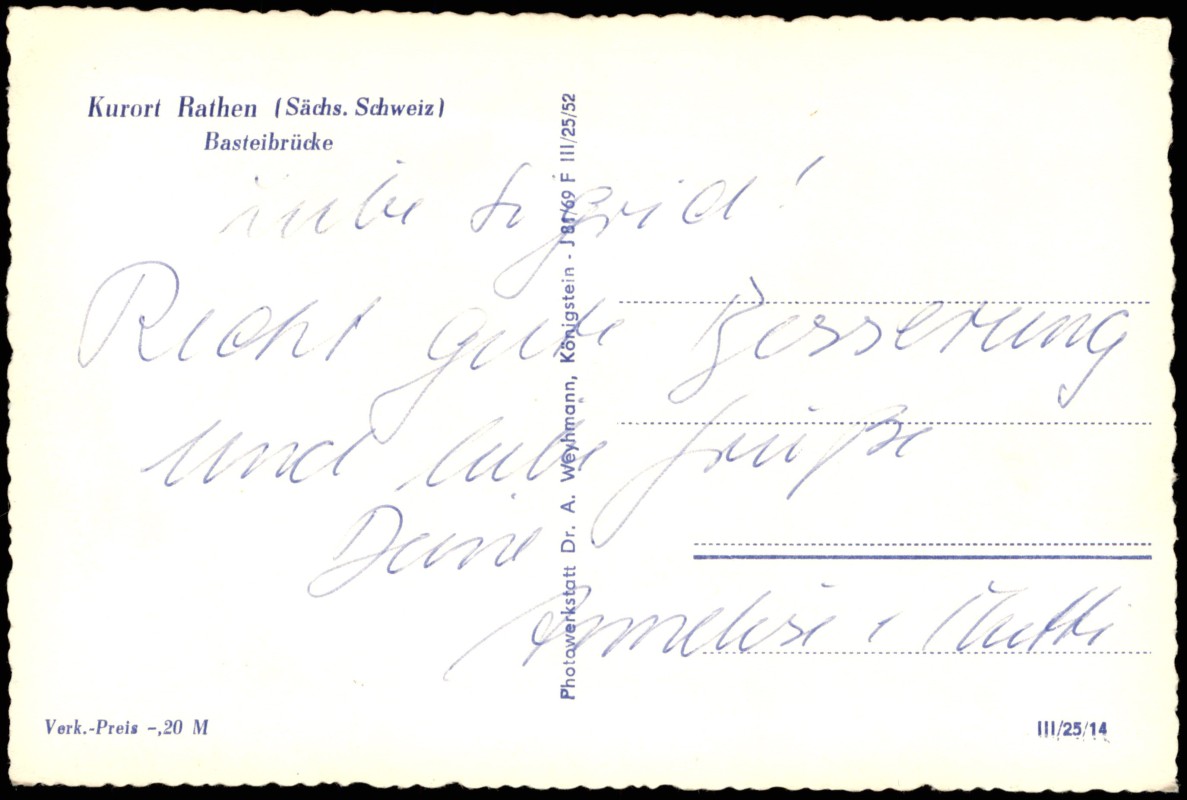 Kurort Rathen (Sächs. Schweiz)
Basteibrücke
Liebe Sigrid!
Recht gute Besserung
und liebe Grüße
Deine
Anneliese + Mutti
Photowerkstatt Dr. A. Weyhmann, Königstein - J 81/69 F III/25/52
Verk.-Preis –,20 M
III/25/14